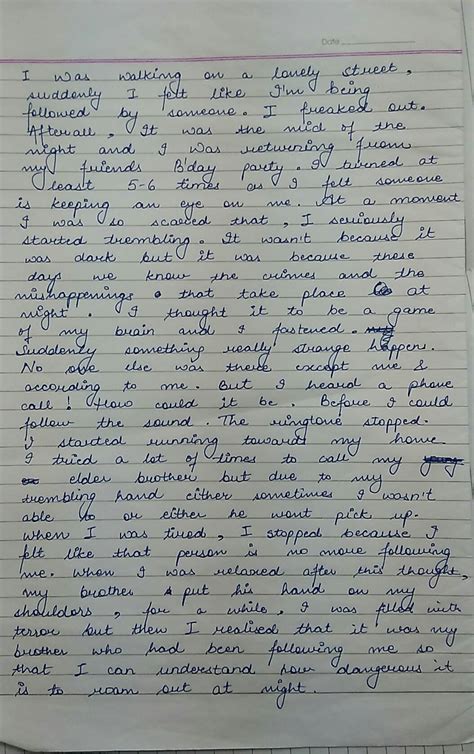 Date
I was walking on a lonely street,
suddenly I felt like I'm being
followed by someone. I freaked out.
After all, It was the mid of the
night and I was returning from
my friends B'day party. I turned at
least 5-6 times as I felt someone
is keeping an eye on me. At a moment
I was so scared that, I seriously
started trembling. It wasn't because it
was dark but it was because these
days we know the crimes and the
mishappenings that take place at
night. I thought it to be a game
of my brain and I fastened.
Suddenly something really strange happens.
No one else was there except me &
according to me. But I heard a phone
call! How could it be. Before I could
follow the sound. The ringtone stopped.
I started running toward my home.
I tried a lot of times to call my
elder brother but due to my
trembling hand either sometimes I wasn't
able to or either he wont pick up.
when I was tired, I stopped because I
felt like that person is no more following
me. When I was relaxed after this thought,
my brother put his hand on my
shoulders, for a while, I was filled with
terror but then I realised that it was my
brother who had been following me so
that I can understand how dangerous it
is to roam out at night.